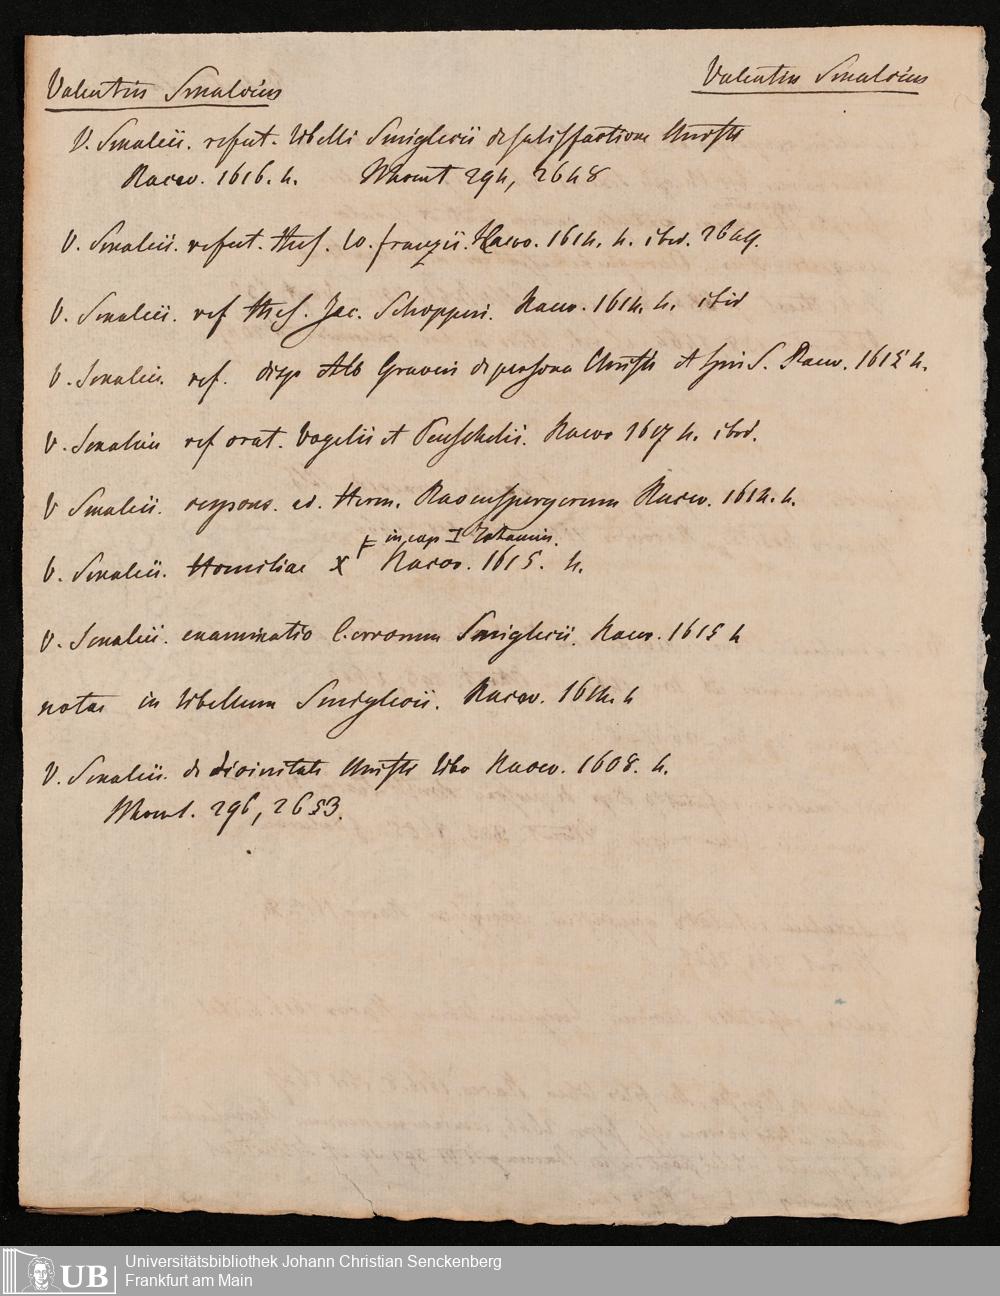 Valentin Smalcius
Valentin Smalcius
V. Smalcii. refut. libelli Smiglecii de satisfactione Christi
Racov. 1616. 4. 294, 2648
V. Smalcii. refut. thes. W. franzii. Racov. 1614. 4. ibid. 2649.
V. Smalcii. ref thes. Jac. Schopperi. Racov. 1614. 4. ibid
V. Smalcii. ref. disp Alb Graveri de persona Christi et Spir S. Racov. 1615 4.
V. Smalcii ref orat. Vogelii et Peuschelii. Racov 1617 4. ibid.
V Smalcii. respons. ad. Herm. Ravenspergerum Racov. 1614. 4.
F in cap I Johannis.
V. Smalcii. Homiliae X Racov. 1615. 4.
V. Smalcii. examinatio C. errorum Smiglecii. Racov. 1615 4
notae in libellum Smiglecii. Racov. 1614. 4
V. Smalcii. de divinitate Christi libr Racov. 1608. 4.
296, 2653.
UB
Universitätsbibliothek Johann Christian Senckenberg
Frankfurt am Main